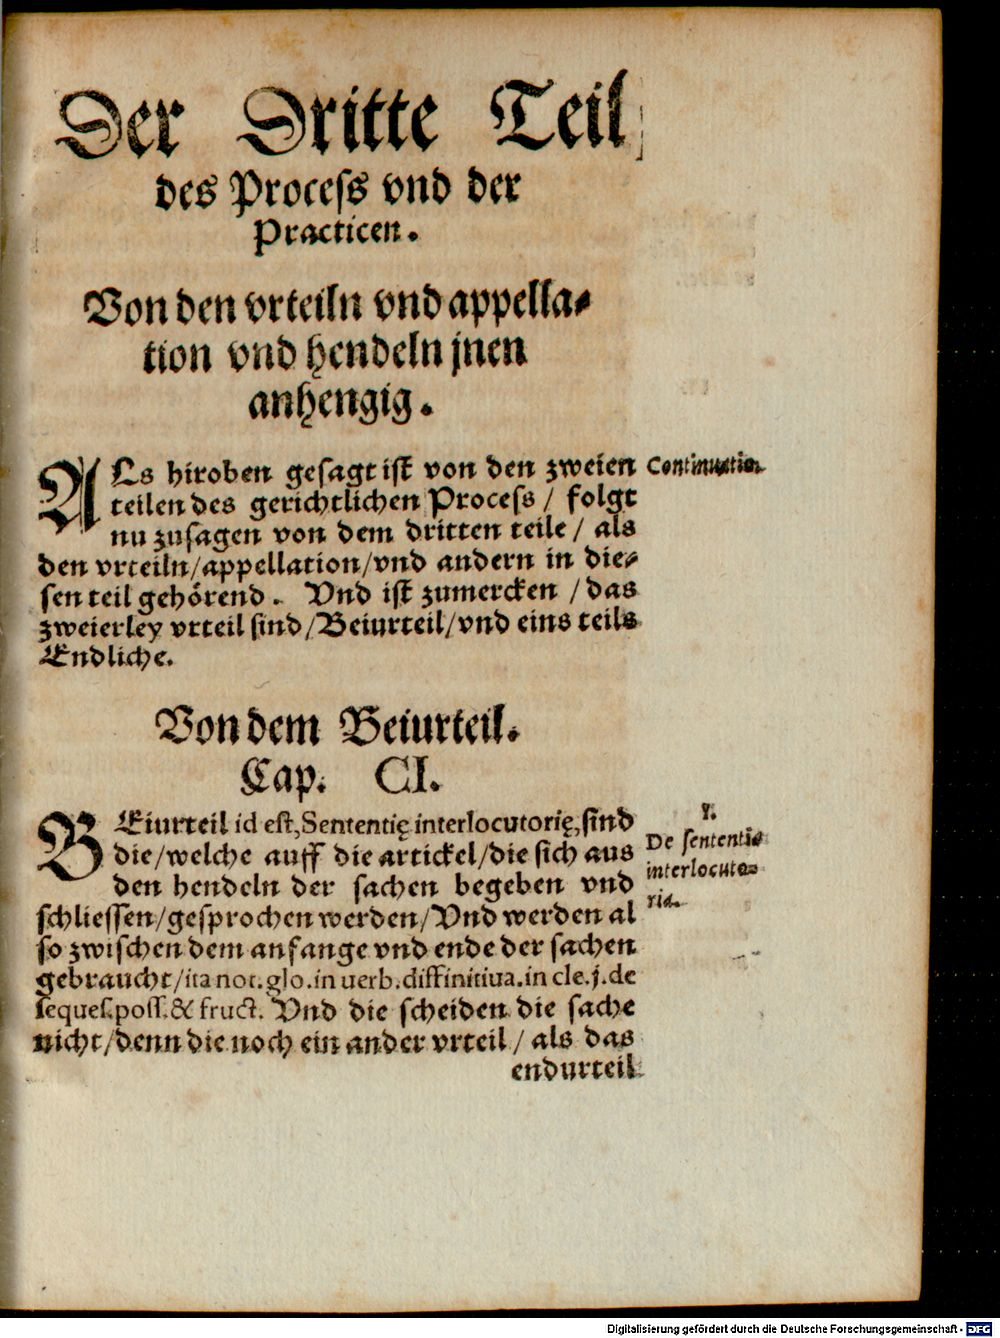 Der Dritte Teil
des Process vnd der
Practicen.
Von den vrteiln vnd appella⸗
tion vnd hendeln jnen
anhengig.
ALs hiroben gesagt ist von den zweien
teilen des gerichtlichen Process / folgt
nu zusagen von dem dritten teile / als
den vrteiln/appellation/vnd andern in die⸗
sen teil gehörend. Vnd ist zumercken / das
zweierley vrteil sind/Beiurteil/vnd eins teils
Endliche.
Continuatio.
Von dem Beiurteil.
Cap. CI.
BEiurteil id est, Sententię interlocutorię, sind
die/welche auff die artickel/die sich aus
den hendeln der sachen begeben vnd
schliessen/gesprochen werden/Vnd werden al
so zwischen dem anfange vnd ende der sachen
gebraucht/ita not. glo. in uerb. diffinitiua. in cle. j. de
seques. poss. & fruct. Vnd die scheiden die sache
nicht/denn die noch ein ander vrteil / als das
endurteil
De sententia
interlocuto⸗
ria.
Digitalisierung gefördert durch die Deutsche Forschungsgemeinschaft - DFG